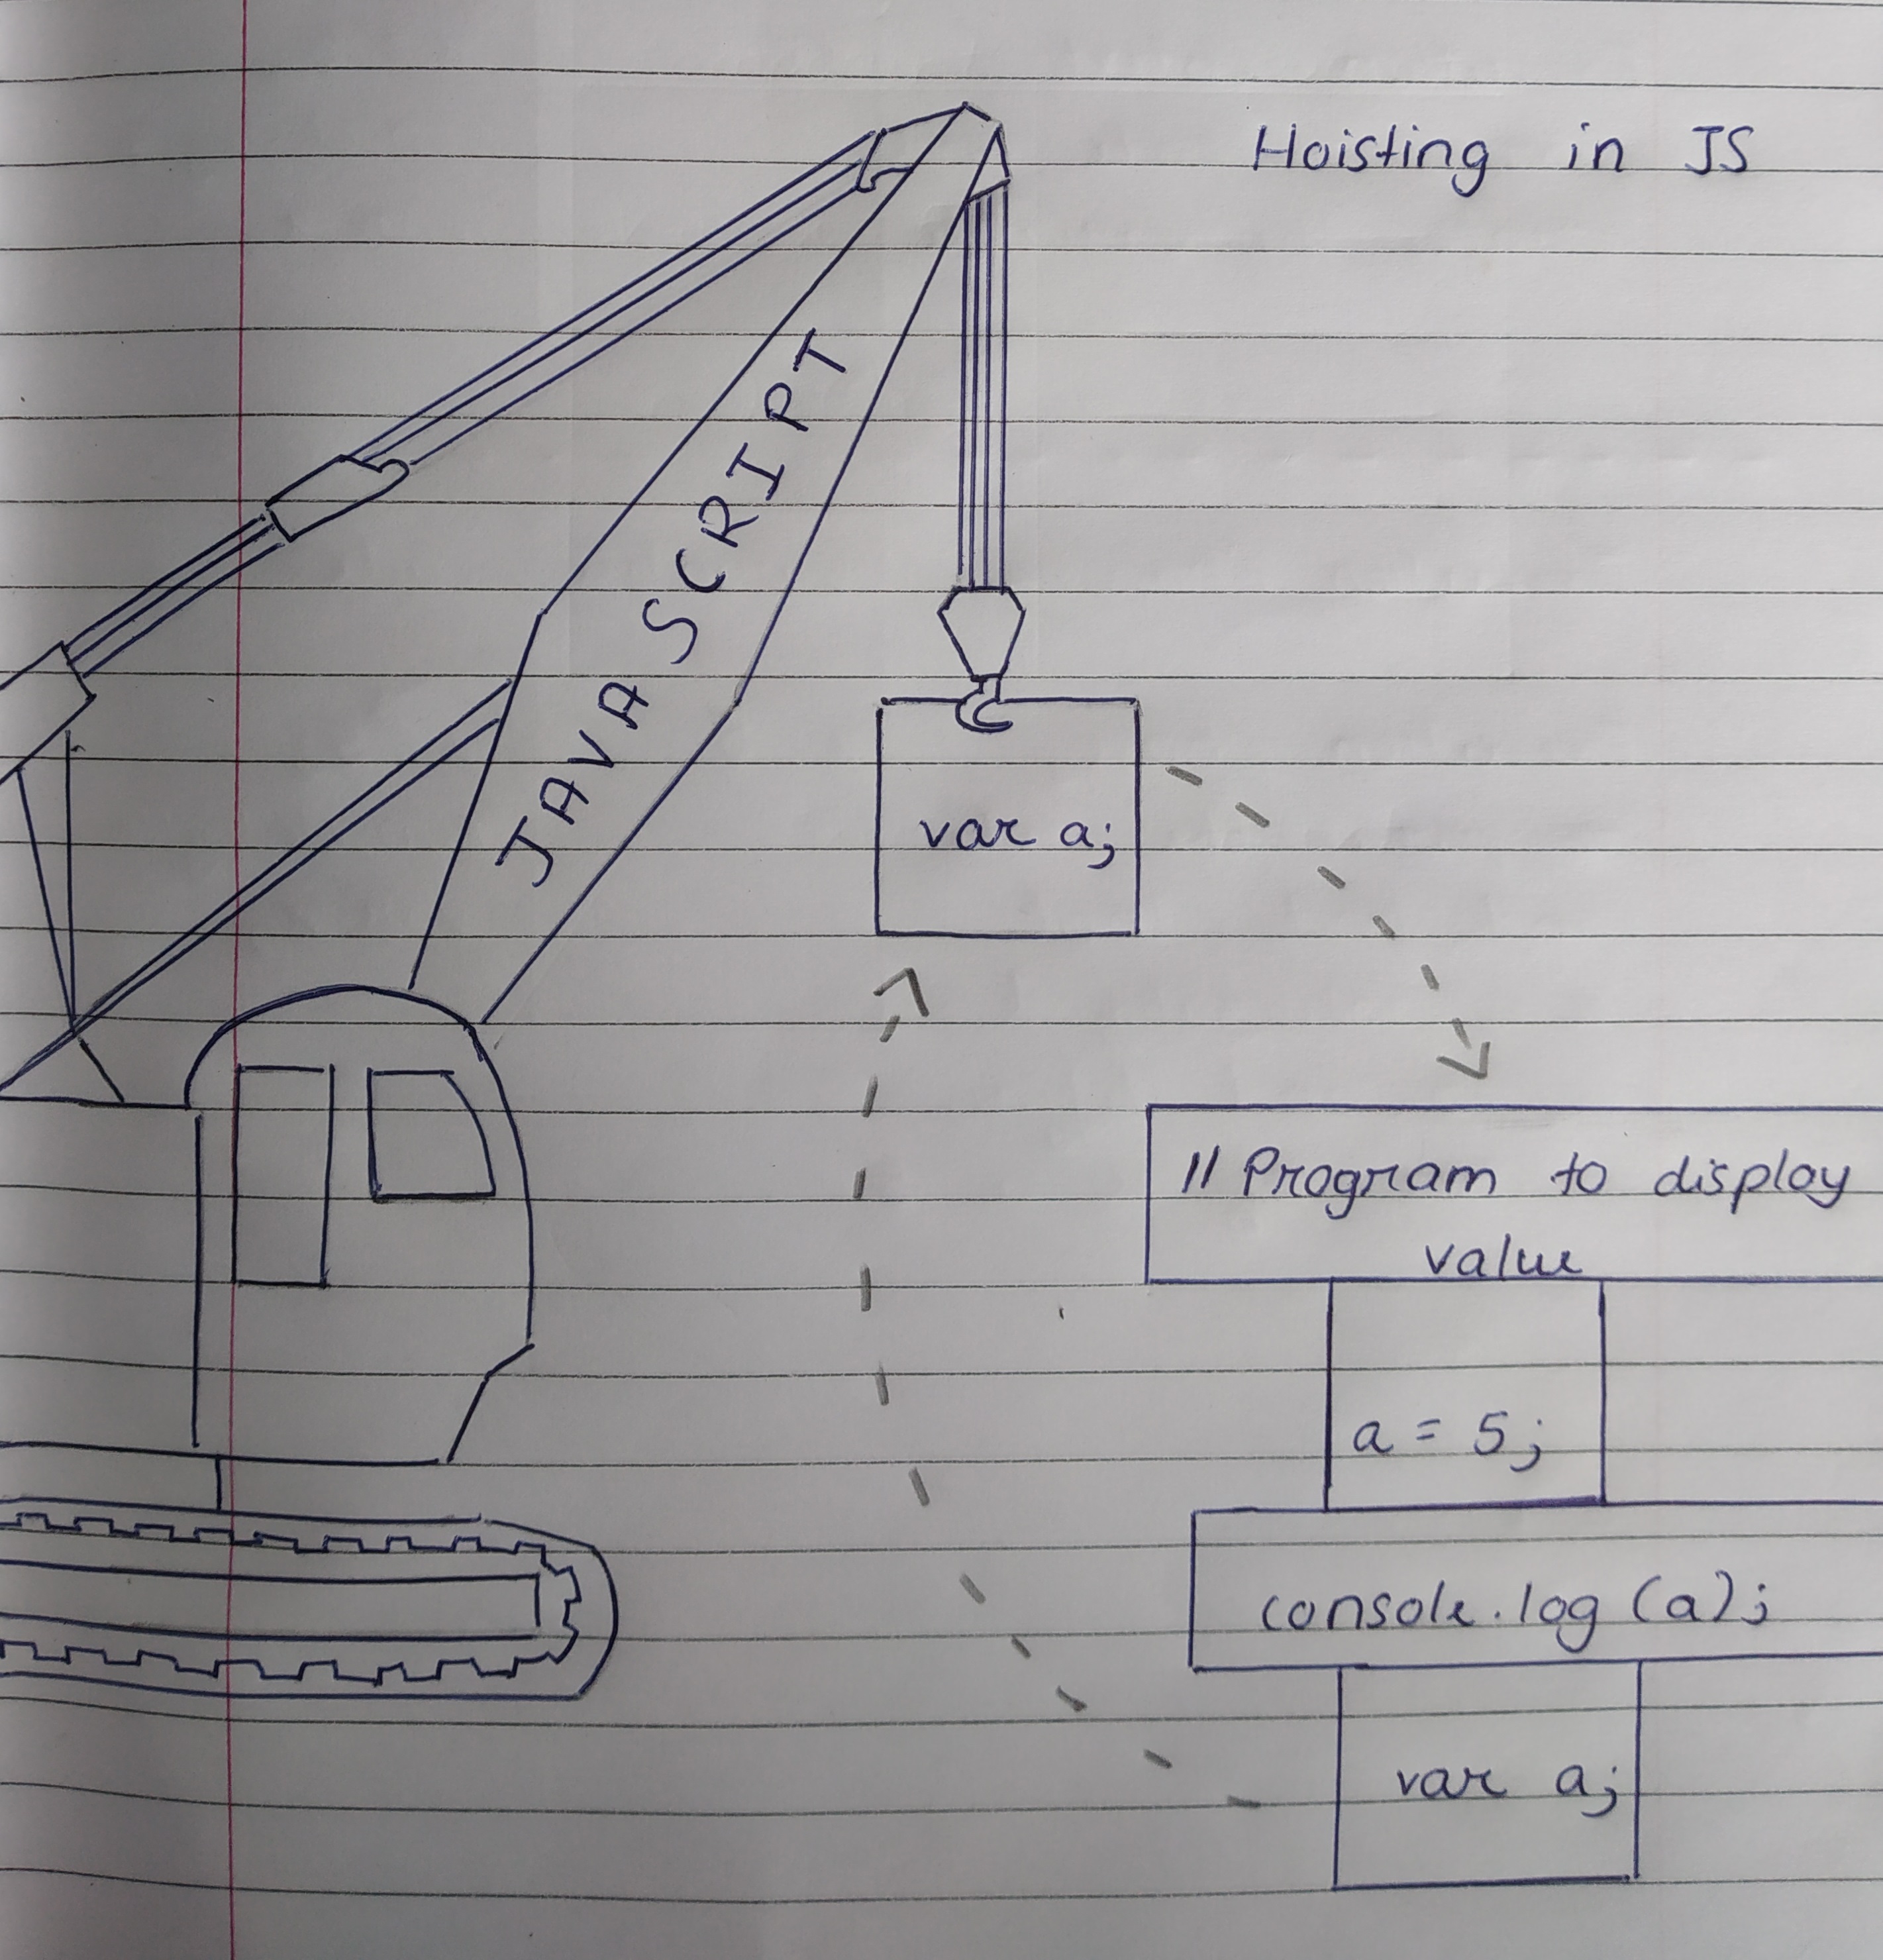 Hoisting in JS
JAVASCRIPT
var a;
// Program to display
value
a = 5;
console.log (a);
var a;